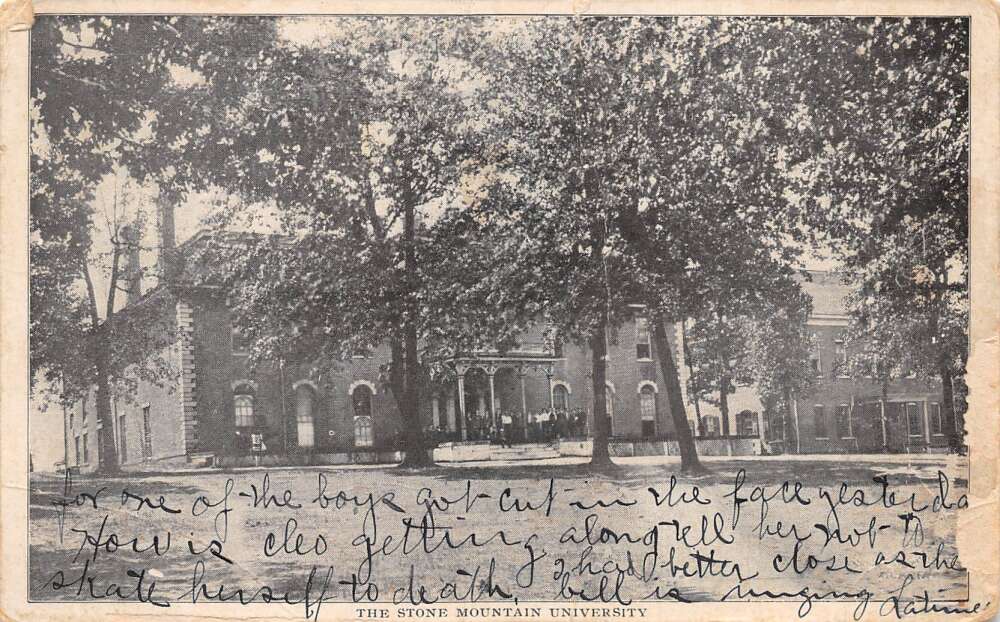 for one of the boys got cut in the face yesterda
How is cleo getting along tell her not to
skate herself to death, I had better close as the
bell is ringing Latimer
THE STONE MOUNTAIN UNIVERSITY